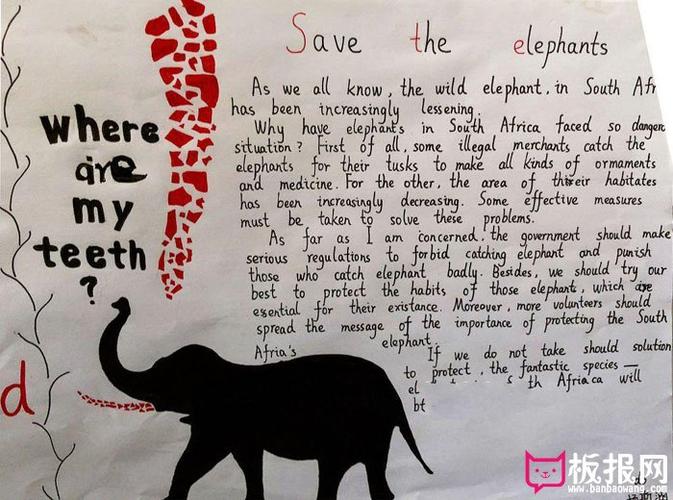 Where
are
my
teeth
?
d
Save the elephants
As we all know, the wild elephant, in South Afr
has been increasingly lessening.
Why have elephants in South Africa faced so danger
situation? First of all, some illegal merchants catch the
elephants for their tusks to make all kinds of ornaments
and medicine. For the other, the area of their habitates
has been increasingly decreasing. Some effective measures
must be taken to solve these problems.
As far as I am concerned, the government should make
serious regulations to forbid catching elephant and punish
those who catch elephant badly. Besides, we should try our
best to protect the habits of those elephant, which are
essential for their existance. Moreover, more volunteers should
spread the message of the importance of protecting the South
Afria's elephant.
If we do not take should solution
to protect, the fantastic species —
el s th Afriaca will
bt
板报网
www.banbaowang.com